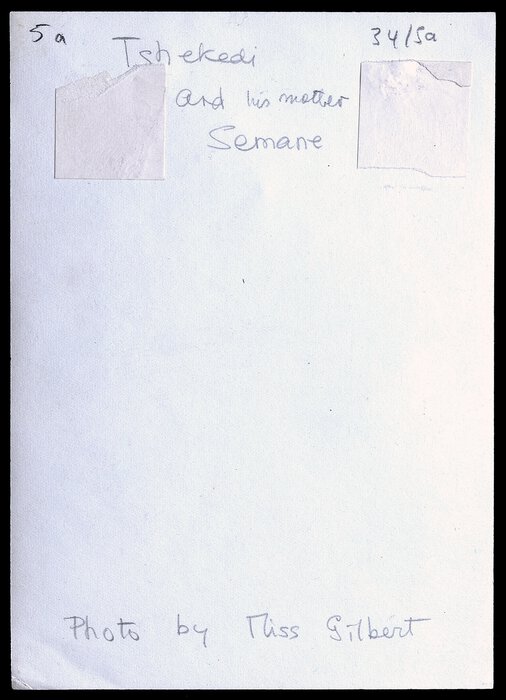 5a
34/5a
Tshekedi
and his mother
Semane
Photo by Miss Gilbert